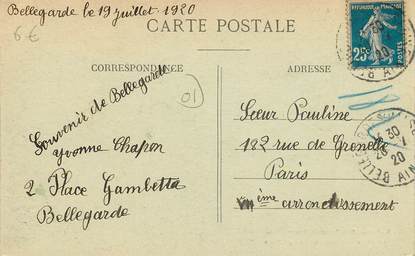 Bellegarde le 19 juillet 1920
6€
CARTE POSTALE
CORRESPONDANCE
ADRESSE
REPUBLIQUE FRANÇAISE
25c POSTES
01
Souvenir de Bellegarde
Yvonne Chapon
2 Place Gambetta
Bellegarde
Sœur Pauline
182 rue de Grenelle
Paris
VIIème arrondissement
BELLEGARDE
AIN
20